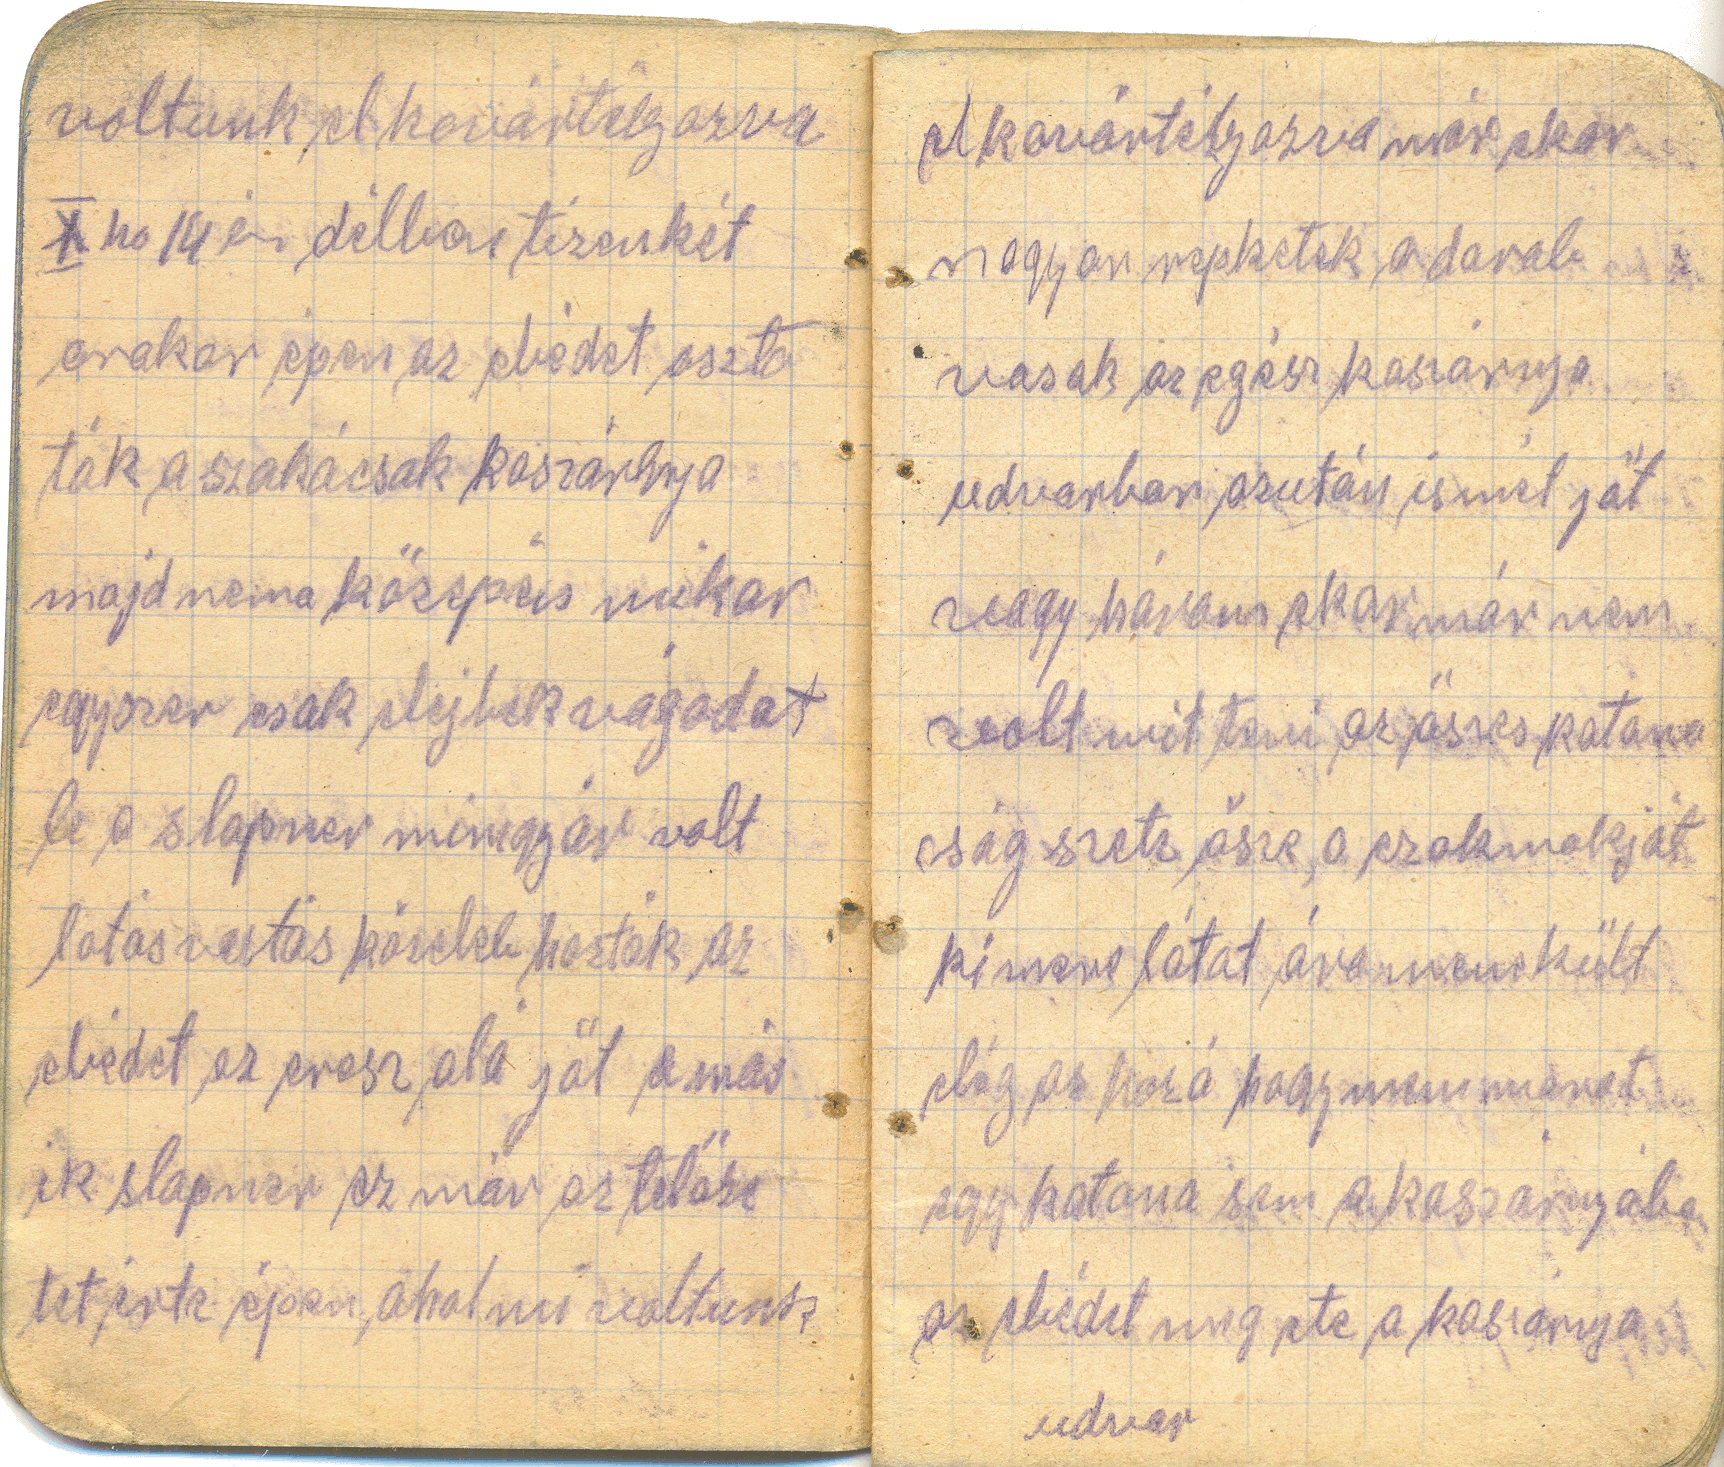 voltunk elkovártéljozva
X ho 14 én délban tízenkét
orakor épen az ebédet oszto
ták a szakácsak kaszárnya
majd nema közepéis mikor
egyszer csak elejbek vágodot
be a slapner minegyár volt
lotás vutás közeleb hozták az
ebédet az eresz alá jöt a más
ik slapner ez már az telőze
tet érte épen, ahol mi voltunk
elkovártéljozva már ekor
nagyon repketek a darab
vasak az egész kaszárnya
udvarban azután ismét jöt
vagy három ekor már nem
volt mit teni az öszes katona
cság szetz ösze, a czakmakját
ki mere látat ára menekült
elég az hozá hogy nem marat
egy katona sem a kaszárnyába
az ebédet meg ete a kaszárnya
udvar